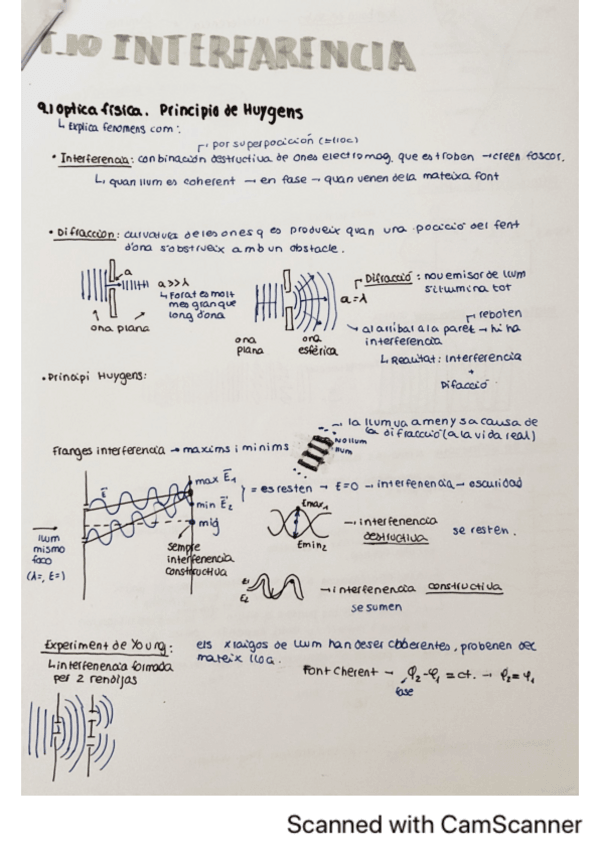 T.10 INTERFARÈNCIA
9.1 optica física. Principio de Huygens
↳ Explica fenomens com:
↱ por superposicición (=lloc)
• Interferencia: combinación destructiva de ones electromag. que es troben → creen foscor.
↳ quan llum es coherent → en fase → quan venen de la mateixa font
• Difracción: curvatura de les ones q es produeix quan una pocició del fent
d'ona s'obstrueix amb un obstacle.
a
a>>λ
↳ Forat es molt
mes gran que
long d'ona
ona plana
a=λ
ona
plana
ona
esférica
Difracció: nou emisor de llum
s'ilumina tot
reboten
al arribal a la paret → hi ha
interferencia
↳ Realitat: Interferencia
+
Difacció
• Principi Huygens:
la llum va a menys a causa de
la difracció (a la vida real)
No llum
llum
Franges interferencia → maxims i minims
max E₁
min E₂
mig
E
= es resten → E=0 → interfenencia → oscuridad
llum
mismo
foco
(λ=, E=)
sempre
interferencia
constructiva
Emax₁
Emin₂
→ interfenencia
destructiva
se resten.
E₁
E₂
→ interfenencia constructiva
se sumen
Experiment de Young:
↳ interfenencia formada
per 2 rendijas
els raigos de llum han de ser coherentes, probenen del
mateix lloc.
Font Cherent → φ₂-φ₁ = ct. → φ₂=φ₁
fase
Scanned with CamScanner